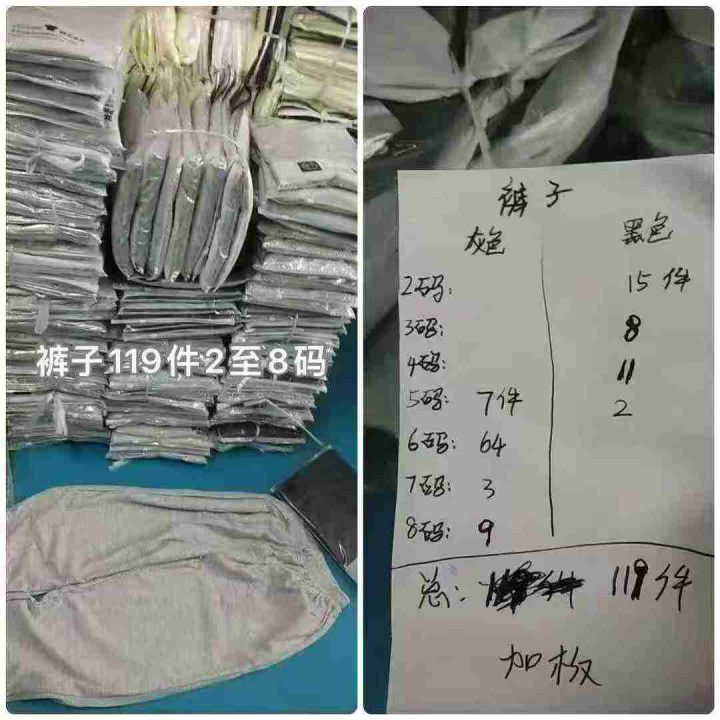 裤子119件2至8码
裤子
灰色 黑色
2码: 15件
3码: 8
4码: 11
5码: 7件 2
6码: 64
7码: 3
8码: 9
总: 119件
加板